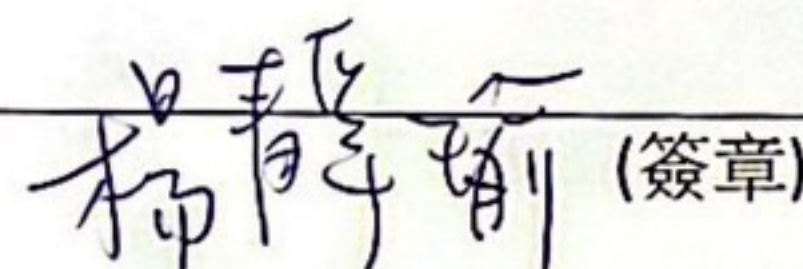 楊靜瑜 (簽章)